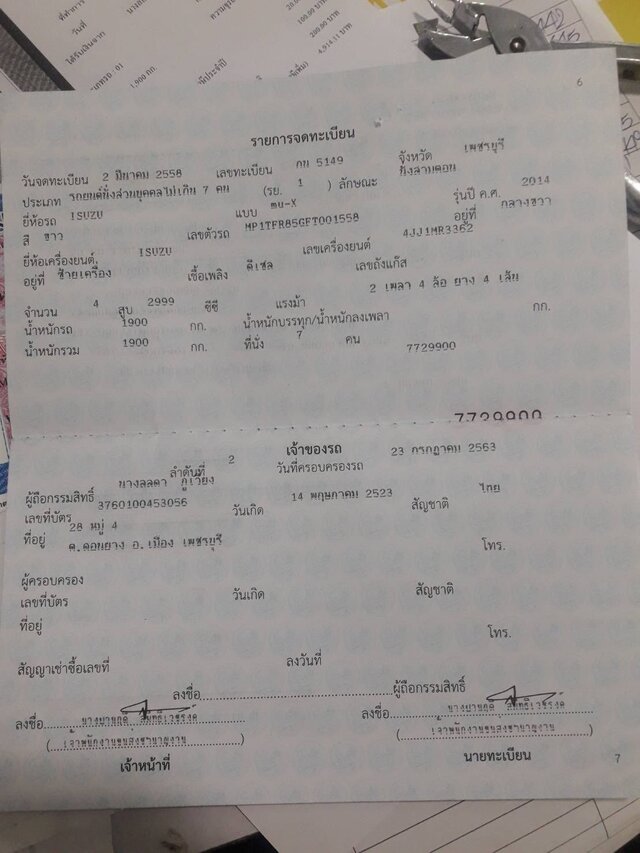 ที่ทำการ
วันที่
ได้รับเงินจาก
20.00
100.00 บาท
200.00 บาท
4,914.11 บาท
1,900 กก.
6
รายการจดทะเบียน
วันจดทะเบียน 2 มีนาคม 2558 เลขทะเบียน กน 5149 จังหวัด เพชรบุรี
ประเภท รถยนต์นั่งส่วนบุคคลไม่เกิน 7 คน (รย. 1 ) ลักษณะ นั่งสามตอน
ยี่ห้อรถ ISUZU แบบ mu-X รุ่นปี ค.ศ. 2014
สี ขาว เลขตัวรถ MP1TFR85GFT001558 อยู่ที่ กลางขวา
ยี่ห้อเครื่องยนต์. ISUZU เลขเครื่องยนต์ 4JJ1MR3362
อยู่ที่ ซ้ายเครื่อง เชื้อเพลิง ดีเซล เลขถังแก๊ส
จำนวน 4 สูบ 2999 ซีซี แรงม้า 2 เพลา 4 ล้อ ยาง 4 เส้น
น้ำหนักรถ 1900 กก. น้ำหนักบรรทุก/น้ำหนักลงเพลา กก.
น้ำหนักรวม 1900 กก. ที่นั่ง 7 คน 7729900
7729900
เจ้าของรถ
ลำดับที่ 2 วันที่ครอบครองรถ 23 กรกฎาคม 2563
ผู้ถือกรรมสิทธิ์ นางลลดา ภูเวียง
เลขที่บัตร 3760100453056 วันเกิด 14 พฤษภาคม 2523 สัญชาติ ไทย
ที่อยู่ 28 หมู่ 4
ต.ดอนยาง อ.เมือง เพชรบุรี โทร.
ผู้ครอบครอง
เลขที่บัตร วันเกิด สัญชาติ
ที่อยู่ โทร.
สัญญาเช่าซื้อเลขที่ ลงวันที่
ลงชื่อ ผู้ถือกรรมสิทธิ์
ลงชื่อ ลงชื่อ
(เจ้าพนักงานขนส่งชำนาญงาน) (เจ้าพนักงานขนส่งชำนาญงาน)
เจ้าหน้าที่ นายทะเบียน
7